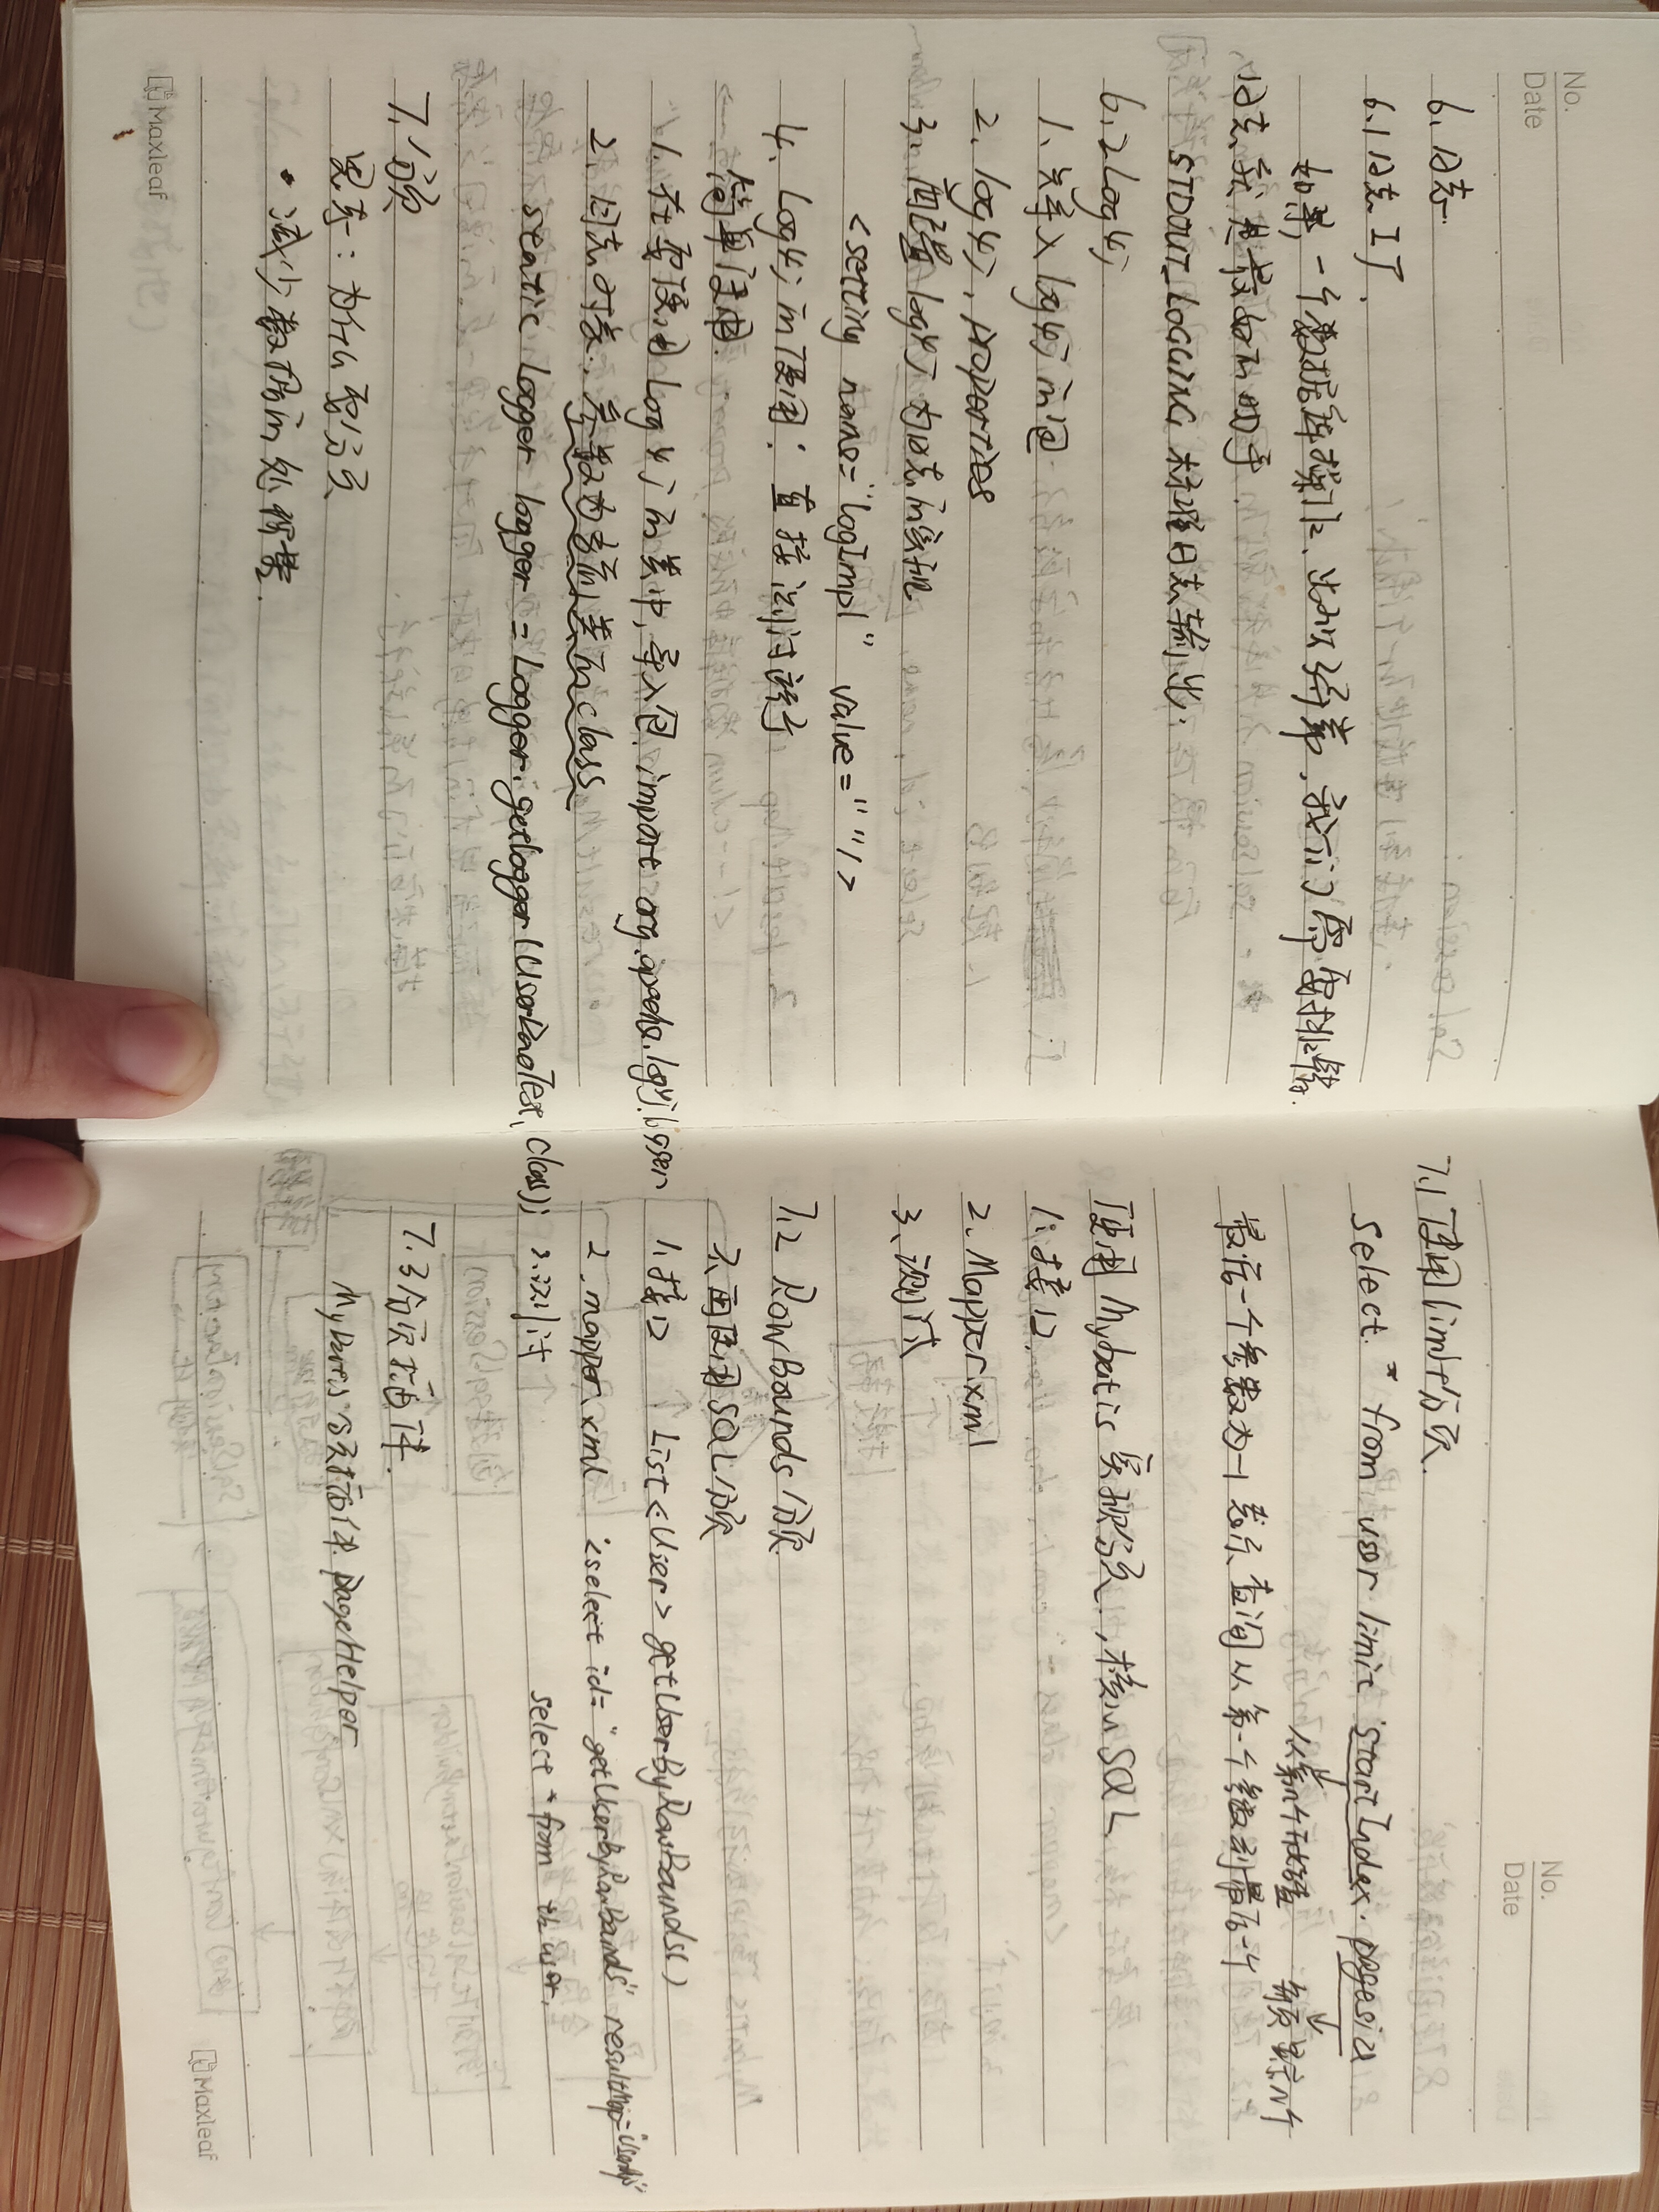 No.
Date
6. 日志
6.1 日志工厂
如果,一个数据库操作,出现异常,我们需要排错.
日志就是最好的助手.
STDOUT_LOGGING 标准日志输出.
6.2 Log4j
1. 先导入log4j的包
2. log4j.properties
3. 配置log4j为日志的实现
<setting name="logImpl" value=""/>
4. Log4j的使用:直接测试运行
简单使用.
1. 在要使用Log4j的类中,导入包 import org.apache.log4j.logger
2. 日志对象,参数为当前类的class
static Logger logger = Logger.getLogger(UserDaoTest.class);
7. 分页
思考:为什么要分页
• 减少数据的处理量.
Maxleaf
No.
Date
7.1 使用limit分页.
select * from user limit startIndex. pagesize
从第几个开始查 每页显示几个
最后一个参数为-1 表示查询从第一个参数到最后一个
使用Mybatis实现分页,核心SQL
1. 接口
2. Mapper.xml
3. 测试
7.2 RowBounds分页
不再使用SQL分页
1. 接口 List<User> getUserByRowBounds()
2. mapper.xml <select id="getUserByRowBounds" resultMap="UserMap"
select * from user.
3. 测试
7.3 分页插件.
MyBatis分页插件 pageHelper
Maxleaf